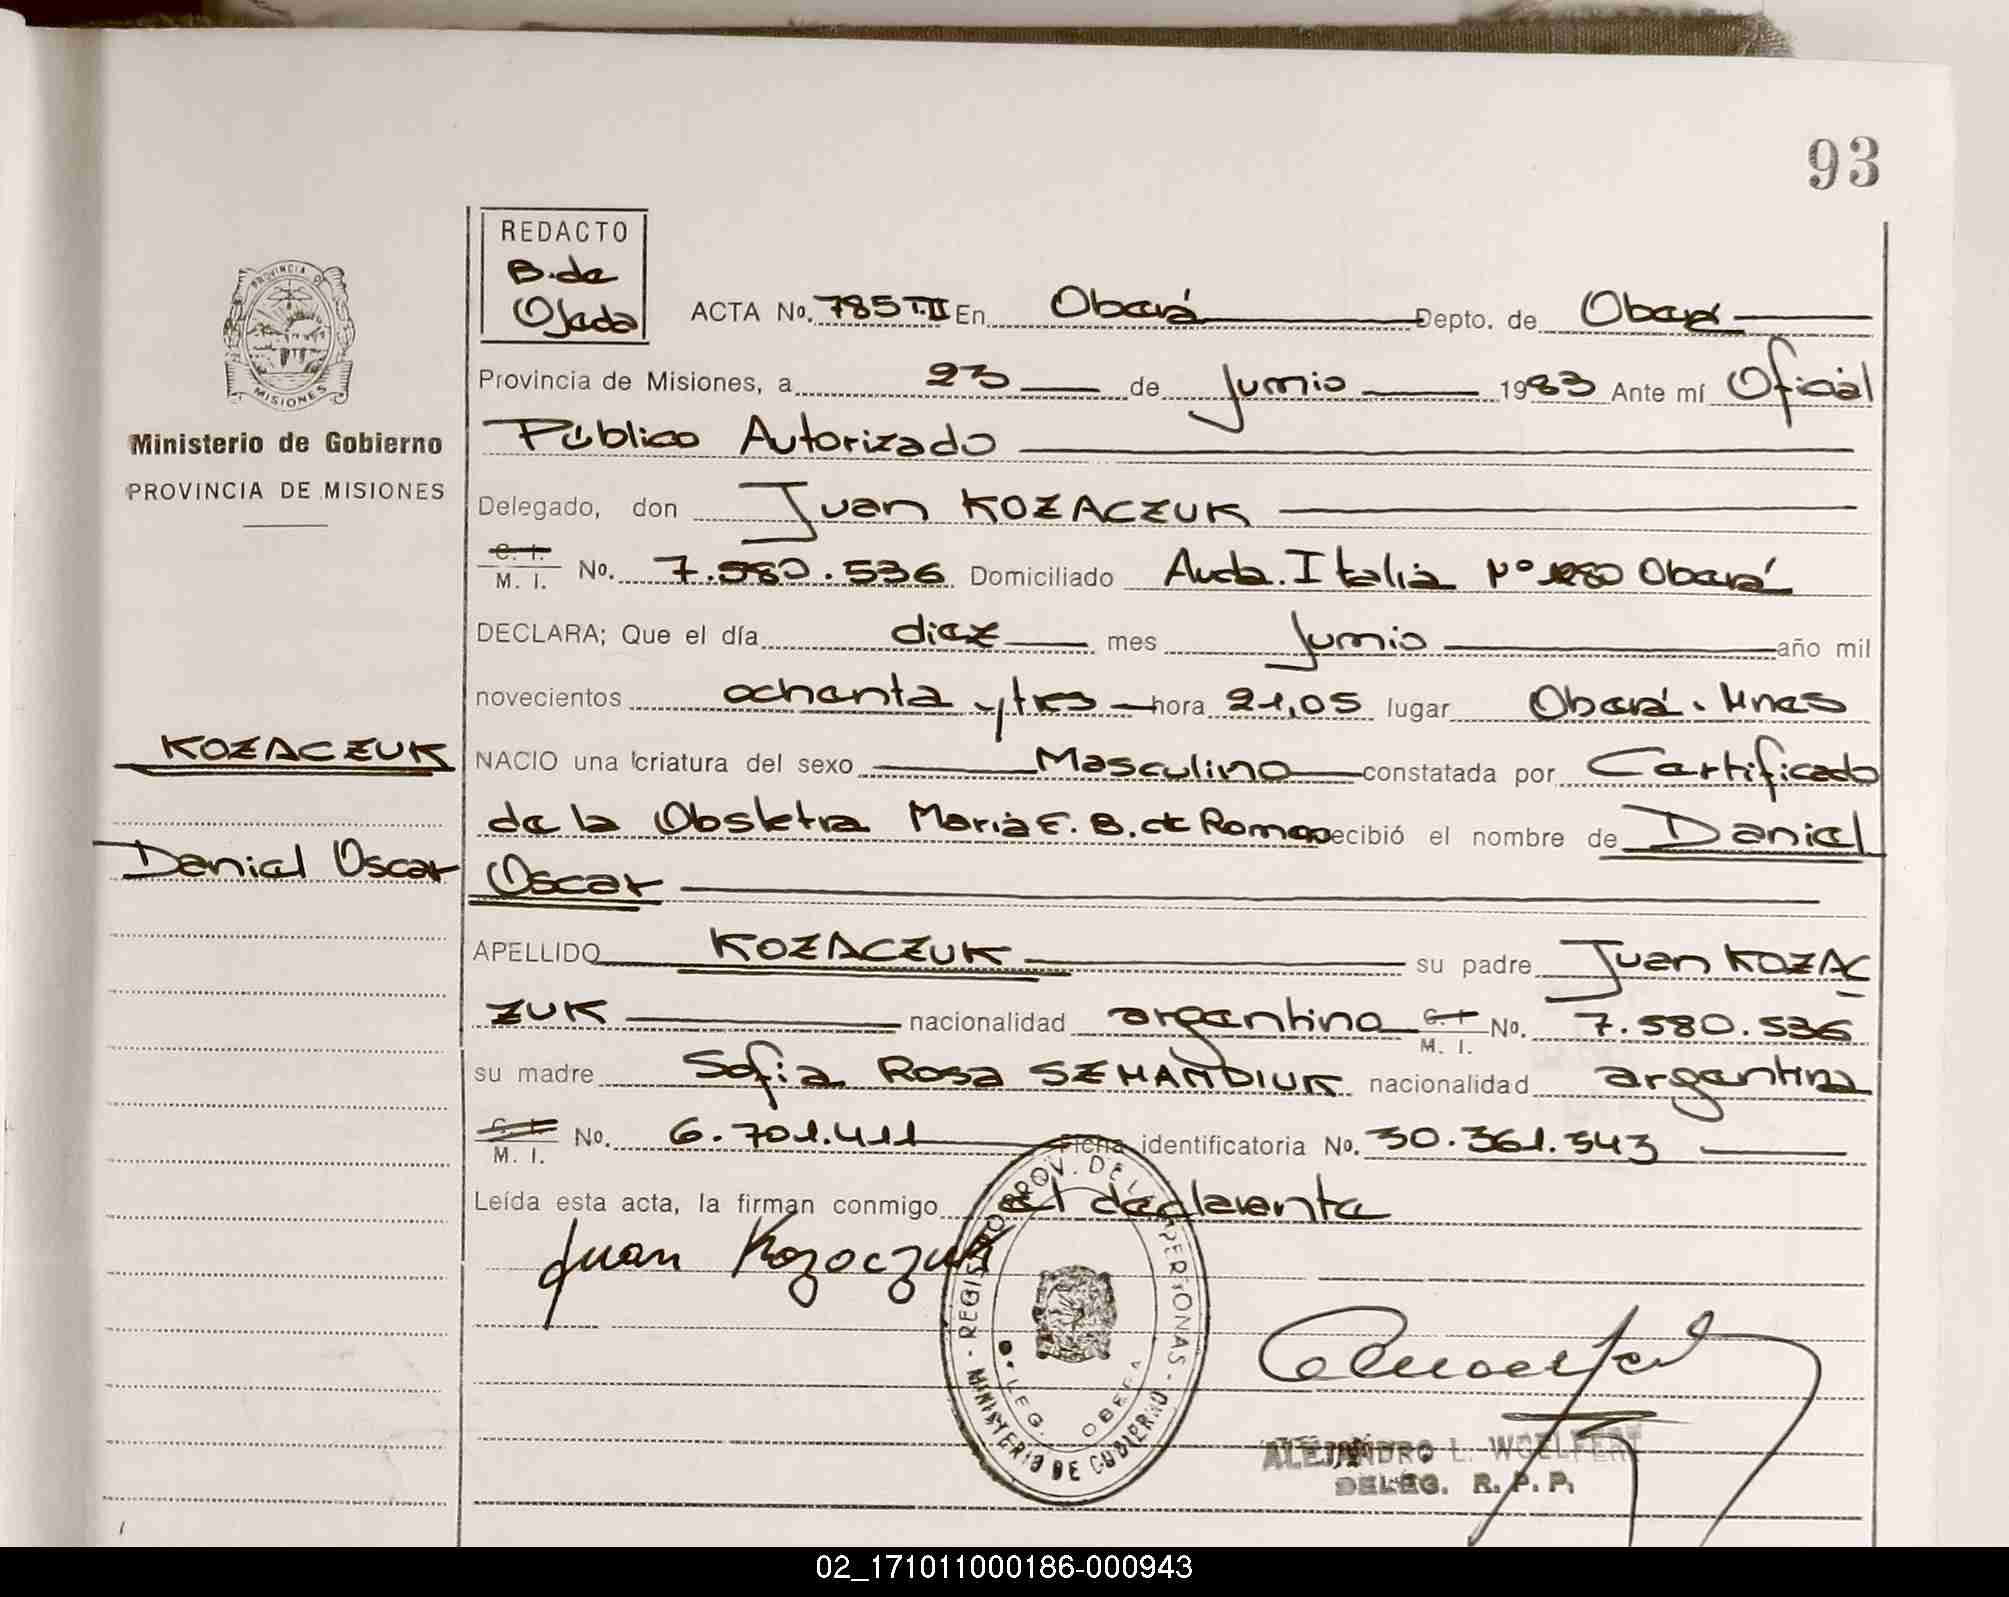 93
REDACTO
B. de
Ojeda
PROVINCIA DE
MISIONES
Ministerio de Gobierno
PROVINCIA DE MISIONES
ACTA No. 785 T.II En Oberá Depto. de Oberá
Provincia de Misiones, a 23 de Junio 1983 Ante mí Oficial
Público Autorizado
Delegado, don Juan KOZACZUK
C. I.
M. I. No. 7.580.536 Domiciliado Avda. Italia Nº 1280 Oberá
DECLARA; Que el día diez mes Junio año mil
novecientos ochenta y tres hora 21,05 lugar Oberá. Mnes
KOZACZUK
NACIO una criatura del sexo Masculino constatada por Certificado
de la Obstetra María E. B. de Romero recibió el nombre de Daniel
Daniel Oscar
Oscar
APELLIDO KOZACZUK su padre Juan KOZAC
ZUK nacionalidad argentino C. I.
M. I. No. 7.580.536
su madre Sofia Rosa SZMANDIUK nacionalidad argentina
C. I.
M. I. No. 6.701.411 Ficha identificatoria No. 30.361.343
Leída esta acta, la firman conmigo el declarante
Juan Kozaczuk
REGISTRO PROV. DE LAS PERSONAS - MINISTERIO DE GOBIERNO -
DELEG. OBERA
ALEJANDRO L. WOELFERT
DELEG. R. P. P.
02_171011000186-000943